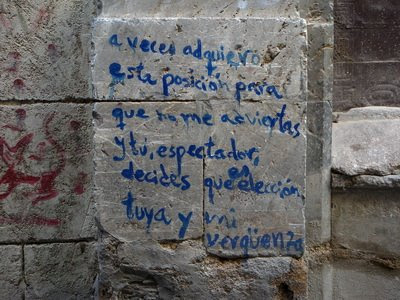 a veces adquiero
esta posición para
que no me adviertas
y tú, espectador,
decides que es elección
tuya y mi
vergüenza